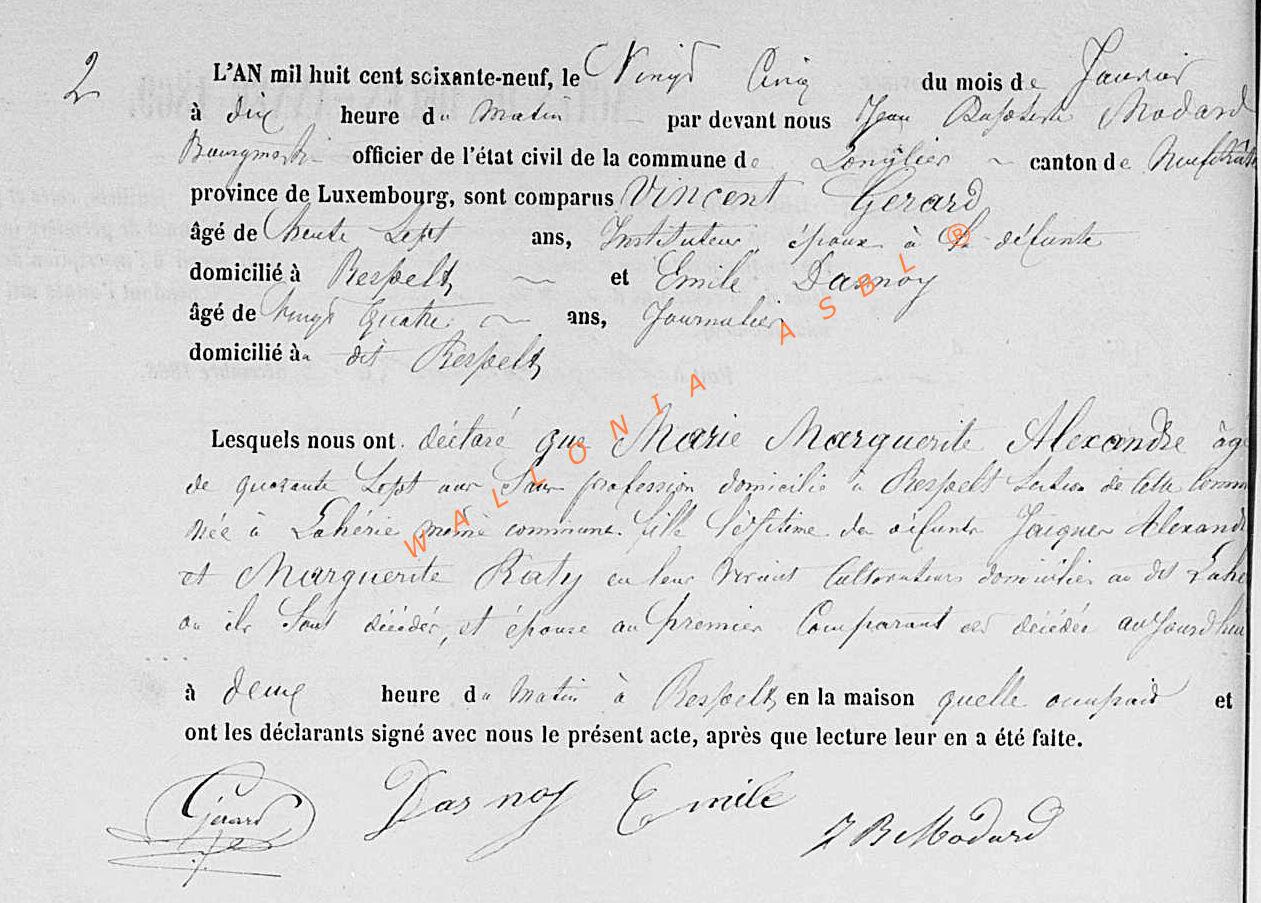 2
L'AN mil huit cent soixante-neuf, le Vingt Cinq du mois de Janvier
à dix heure du Matin par devant nous Jean Baptiste Modard
Bourgmestre officier de l'état civil de la commune de Longlier canton de Neufchâte
province de Luxembourg, sont comparus Vincent Gerard
âgé de trente Sept ans, Instituteur époux à la défunte
domicilié à Respelt et Emile Dasnoy
âgé de Vingt quatre ans, Journalier
domicilié à dit Respelt
Lesquels nous ont déclaré que Marie Marguerite Alexandre âgé
de quarante Sept ans Sans profession domicilié à Respelt Section de Cette Comm
Née à Lahérie même commune fille légitime de défunts Jacques Alexand
et Marguerite Raty en leur Vivant Cultivateurs domiciliés au dit Lahe
ou ils Sont décédés, et épouse au premier Comparant est décédée aujourdhui
à deux heure du Matin à Respelt en la maison quelle occupait et
ont les déclarants signé avec nous le présent acte, après que lecture leur en a été faite.
Gérard Dasnoy Emile J B Modard
WALLONIA ASBL ®